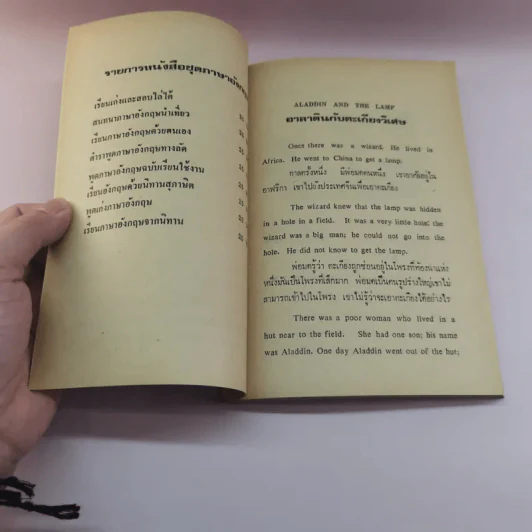 รายการหนังสือชุดภาษาอังกฤษ
เรียนเก่งและสอบไล่ได้
สนทนาภาษาอังกฤษนำเที่ยว
เรียนภาษาอังกฤษด้วยตนเอง
ตำราพูดภาษาอังกฤษทางลัด
พูดภาษาอังกฤษฉบับเรียนใช้งาน
เรียนอังกฤษด้วยนิทานสุภาษิต
พูดเก่งภาษาอังกฤษ
เรียนภาษาอังกฤษจากนิทาน
ALADDIN AND THE LAMP
อาลาดินกับตะเกียงวิเศษ
Once there was a wizard. He lived in
Africa. He went to China to get a lamp.
กาลครั้งหนึ่ง มีพ่อมดคนหนึ่ง เขาอาศัยอยู่ใน
อาฟริกา เขาไปยังประเทศจีนเพื่อเอาตะเกียง
The wizard knew that the lamp was hidden
in a hole in a field. It was a very little hole; the
wizard was a big man; he could not go into the
hole. He did not know to get the lamp.
พ่อมดรู้ว่า ตะเกียงถูกซ่อนอยู่ในโพรงที่ท้องนาแห่ง
หนึ่งมันเป็นโพรงที่เล็กมาก พ่อมดเป็นคนรูปร่างใหญ่เขาไม่
สามารถเข้าไปในโพรง เขาไม่รู้ว่าจะเอาตะเกียงได้อย่างไร
There was a poor woman who lived in a
hut near to the field. She had one son; his name
was Aladdin. One day Aladdin went out of the hut;